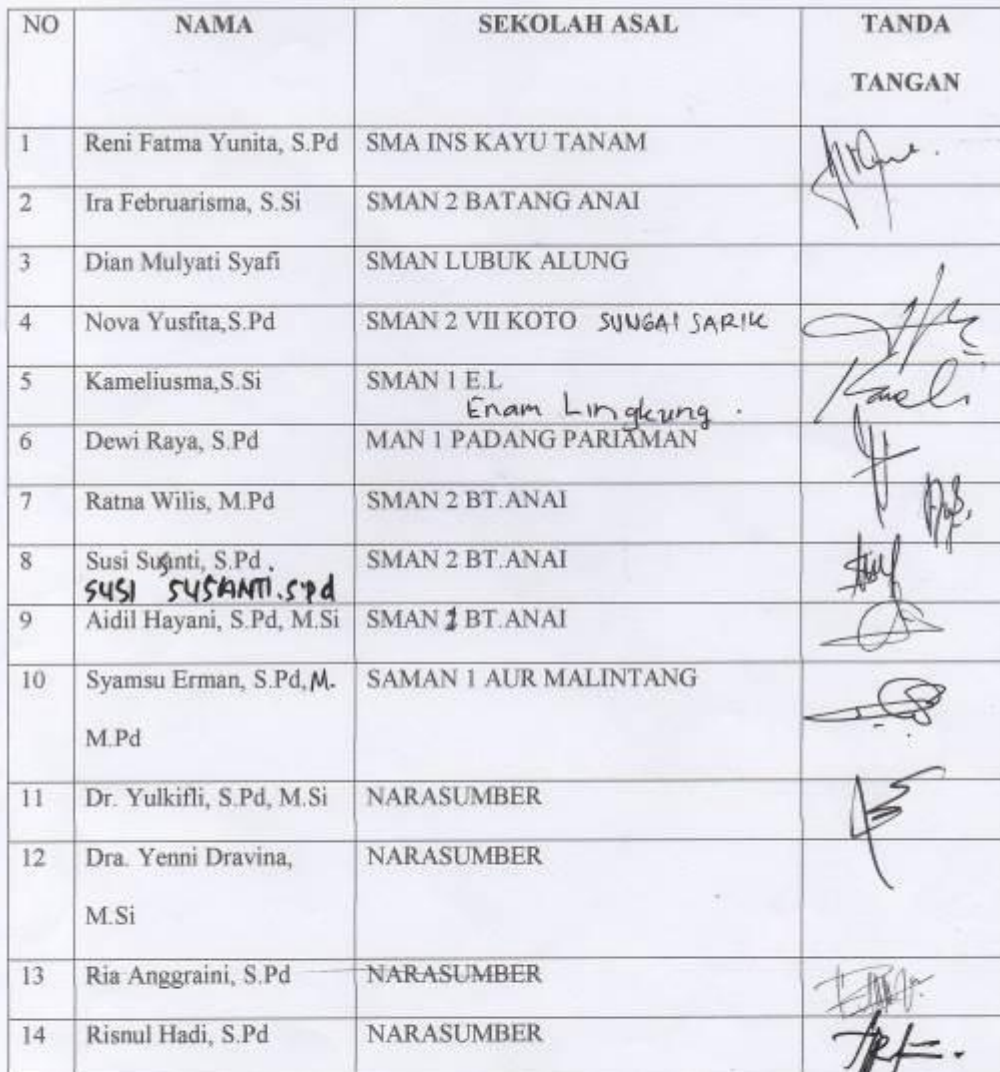 NO NAMA SEKOLAH ASAL TANDA
TANGAN
1 Reni Fatma Yunita, S.Pd SMA INS KAYU TANAM
2 Ira Februarisma, S.Si SMAN 2 BATANG ANAI
3 Dian Mulyati Syafi SMAN LUBUK ALUNG
4 Nova Yusfita,S.Pd SMAN 2 VII KOTO SUNGAI SARIK
5 Kameliusma,S.Si SMAN 1 E.L
Enam Lingkung .
6 Dewi Raya, S.Pd MAN 1 PADANG PARIAMAN
7 Ratna Wilis, M.Pd SMAN 2 BT.ANAI
8 Susi Susanti, S.Pd . SMAN 2 BT.ANAI
SUSI SUSANTI.S.Pd
9 Aidil Hayani, S.Pd, M.Si SMAN 1 BT.ANAI
10 Syamsu Erman, S.Pd,M. SAMAN 1 AUR MALINTANG
M.Pd
11 Dr. Yulkifli, S.Pd, M.Si NARASUMBER
12 Dra. Yenni Dravina, NARASUMBER
M.Si
13 Ria Anggraini, S.Pd NARASUMBER
14 Risnul Hadi, S.Pd NARASUMBER